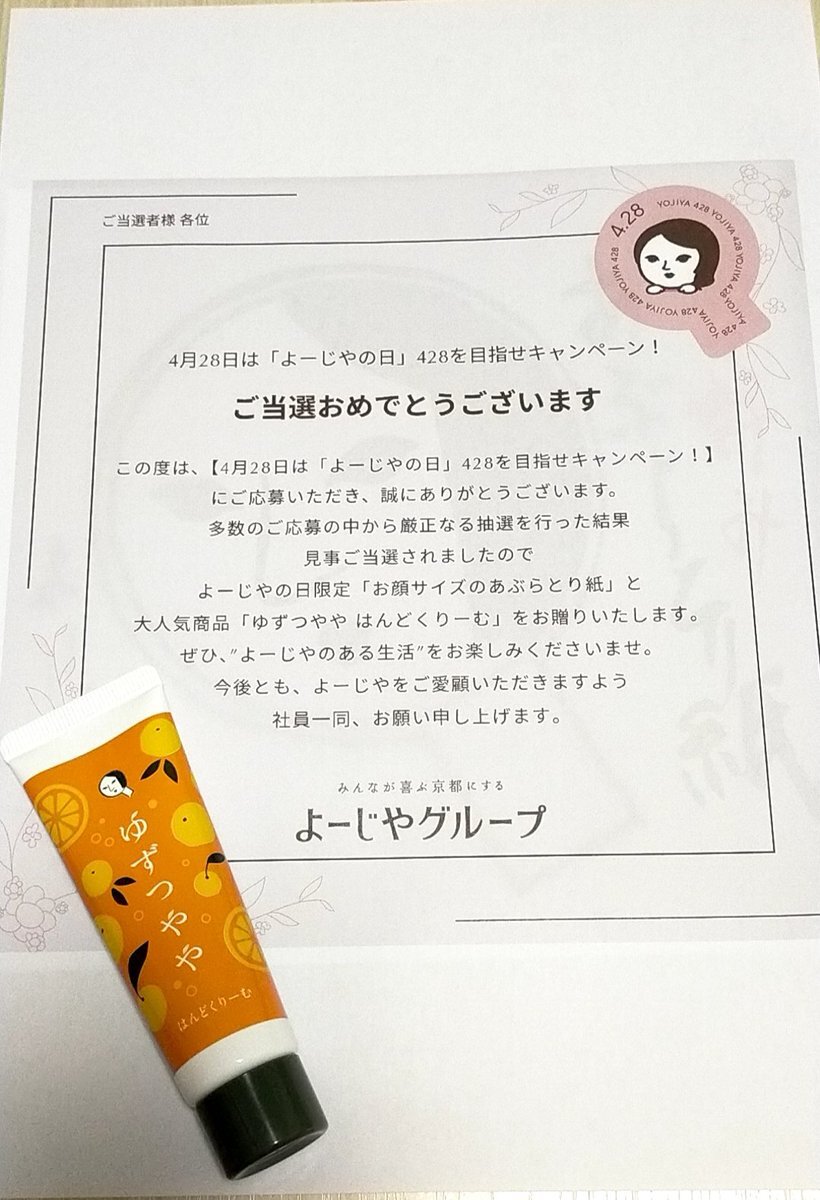 ご当選者様 各位
4.28
YOJIYA 428 YOJIYA 428 YOJIYA 428 YOJIYA 428 YOJIYA 428 YOJIYA 428
4月28日は「よーじやの日」428を目指せキャンペーン！
ご当選おめでとうございます
この度は、【4月28日は「よーじやの日」428を目指せキャンペーン！】
にご応募いただき、誠にありがとうございます。
多数のご応募の中から厳正なる抽選を行った結果
見事ご当選されましたので
よーじやの日限定「お顔サイズのあぶらとり紙」と
大人気商品「ゆずつやや はんどくりーむ」をお贈りいたします。
ぜひ、"よーじやのある生活"をお楽しみくださいませ。
今後とも、よーじやをご愛顧いただきますよう
社員一同、お願い申し上げます。
みんなが喜ぶ京都にする
よーじやグループ
ゆずつやや
はんどくりーむ